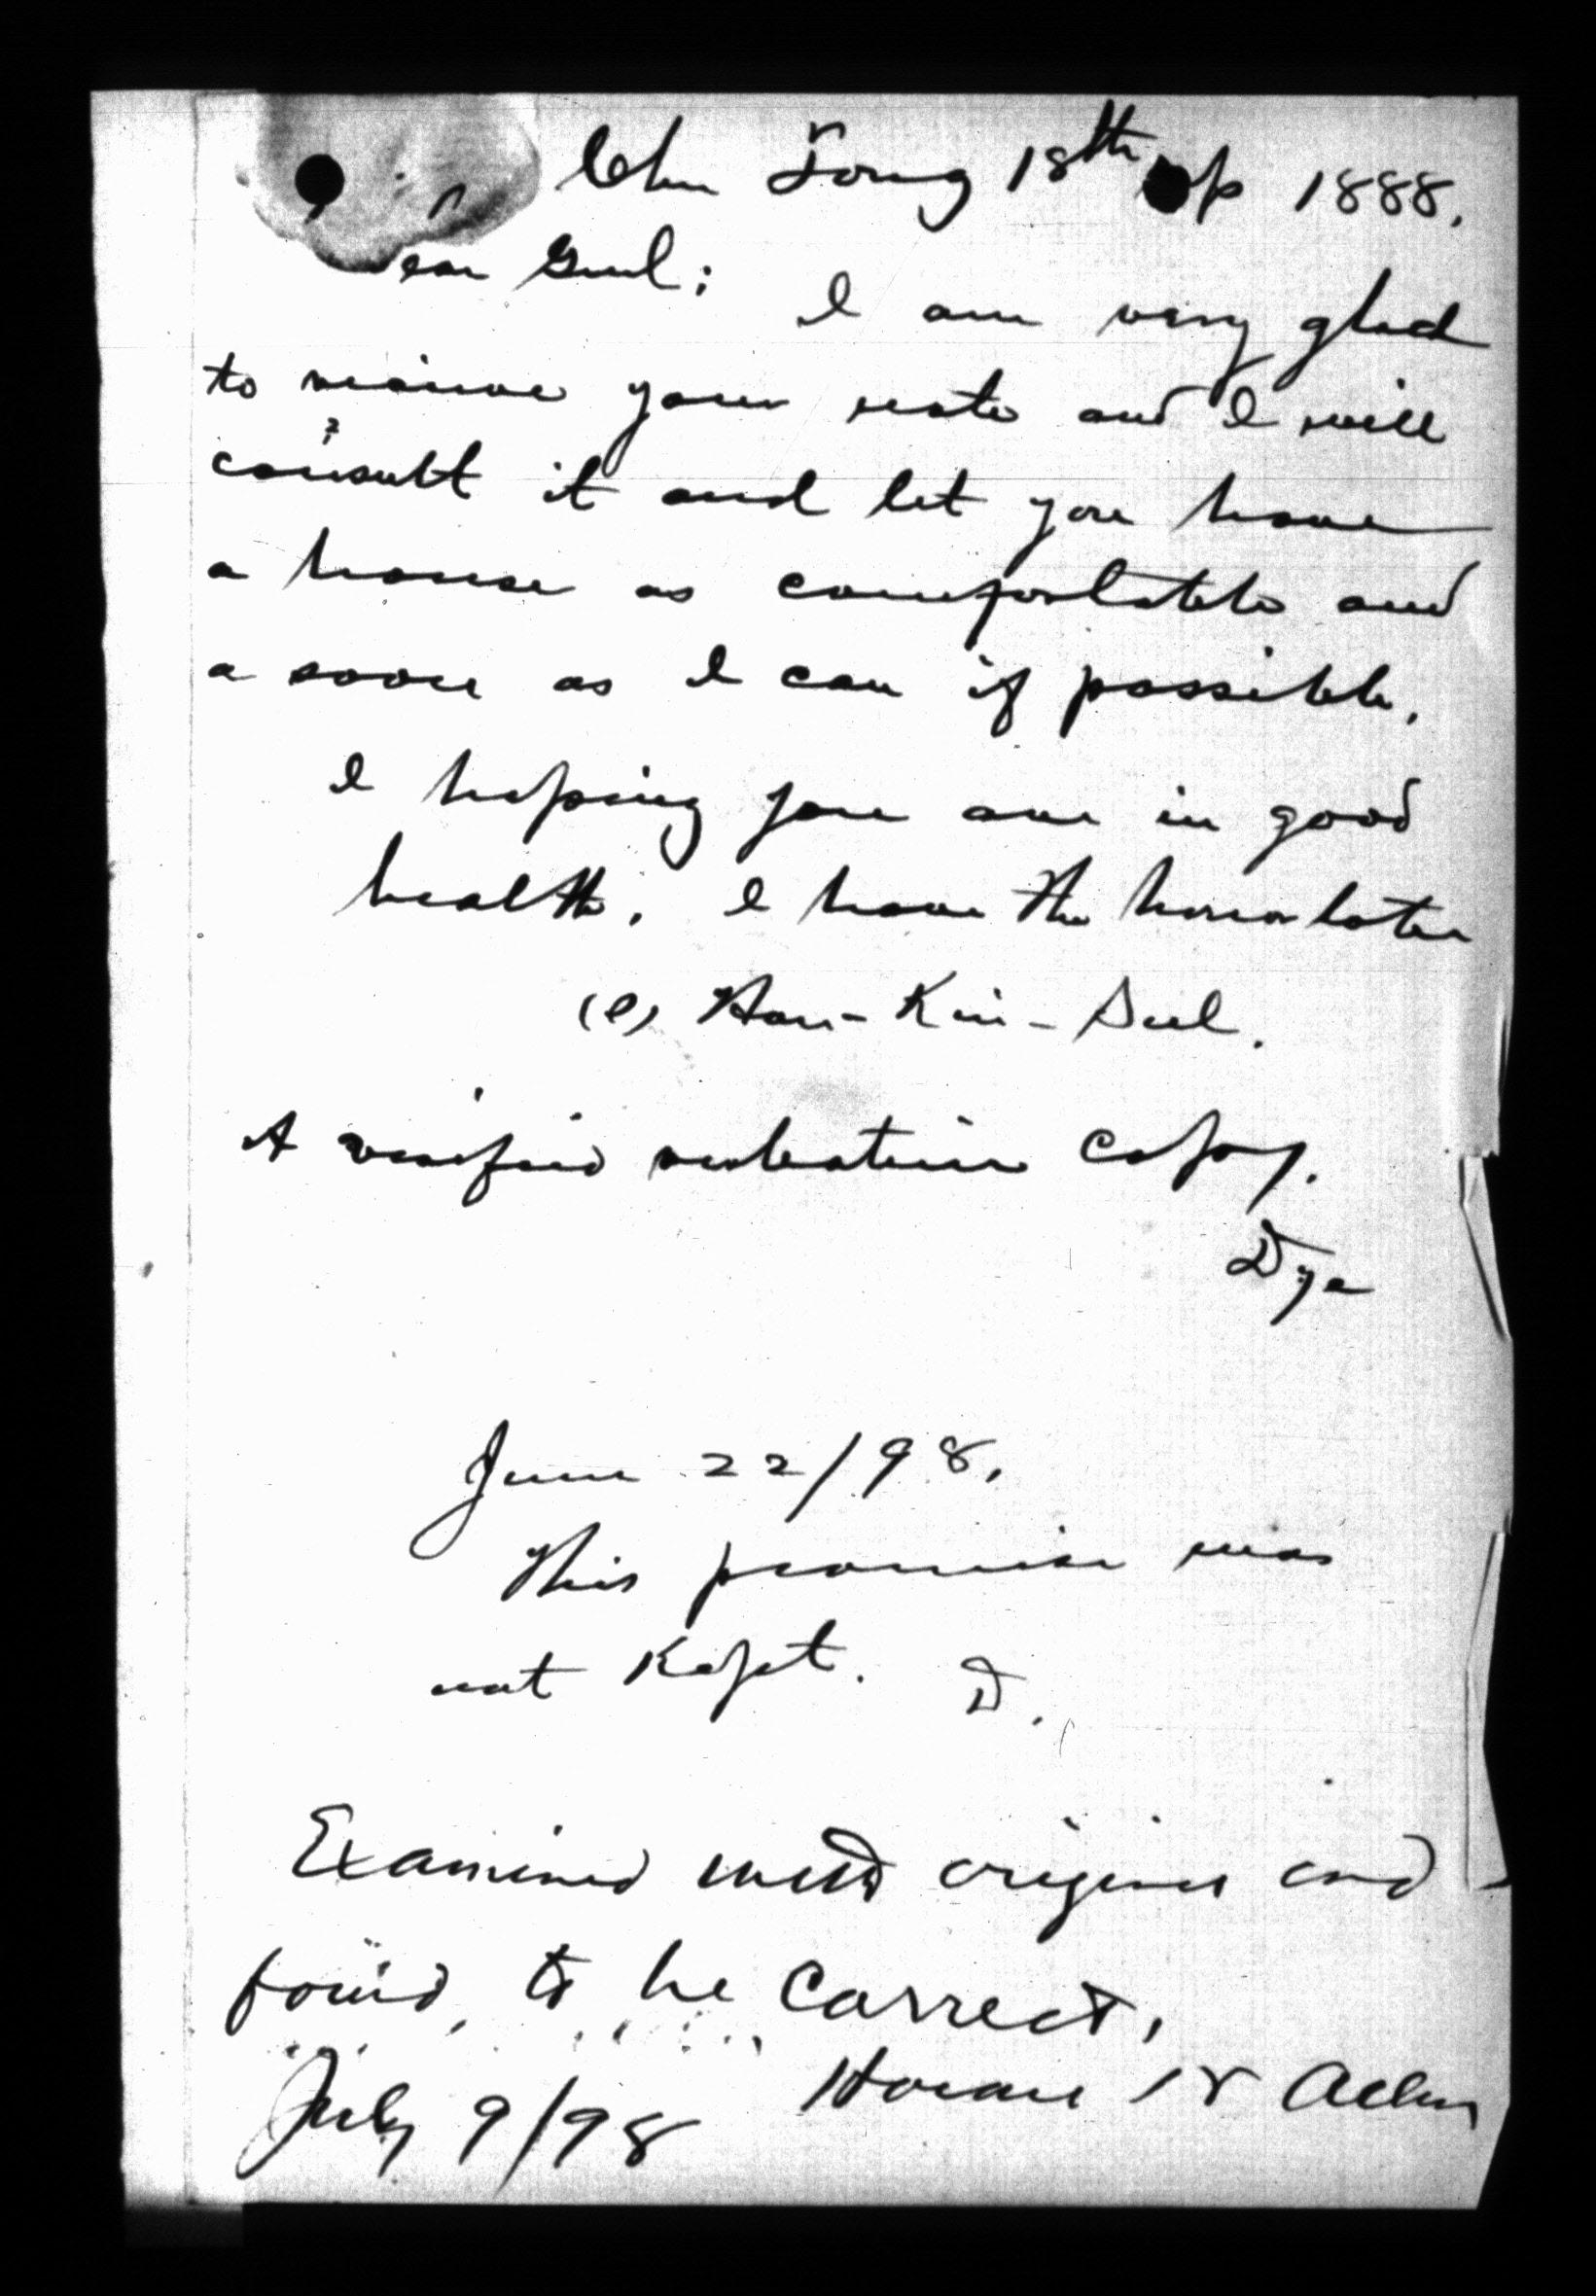 Chu Tong 18th p 1888.
ear Genl; I am very glad
to recieve your note and I will
?
consult it and let you have
a house as comfortable and
a soon as I can if possible.
I hoping you are in good
health. I have the honor to be
(s) Han-Kiu-Sul.
A verified verbatim copy.
Dye
June 22/98.
This promise was
not Kept. D.
Examined with original and
found to be Correct,
July 9/98 Horace N Allen